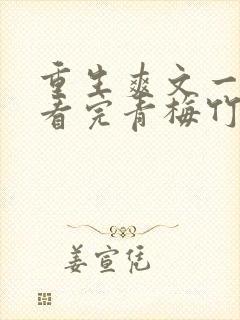 重生爽文一
看完青梅竹
姜宣凭